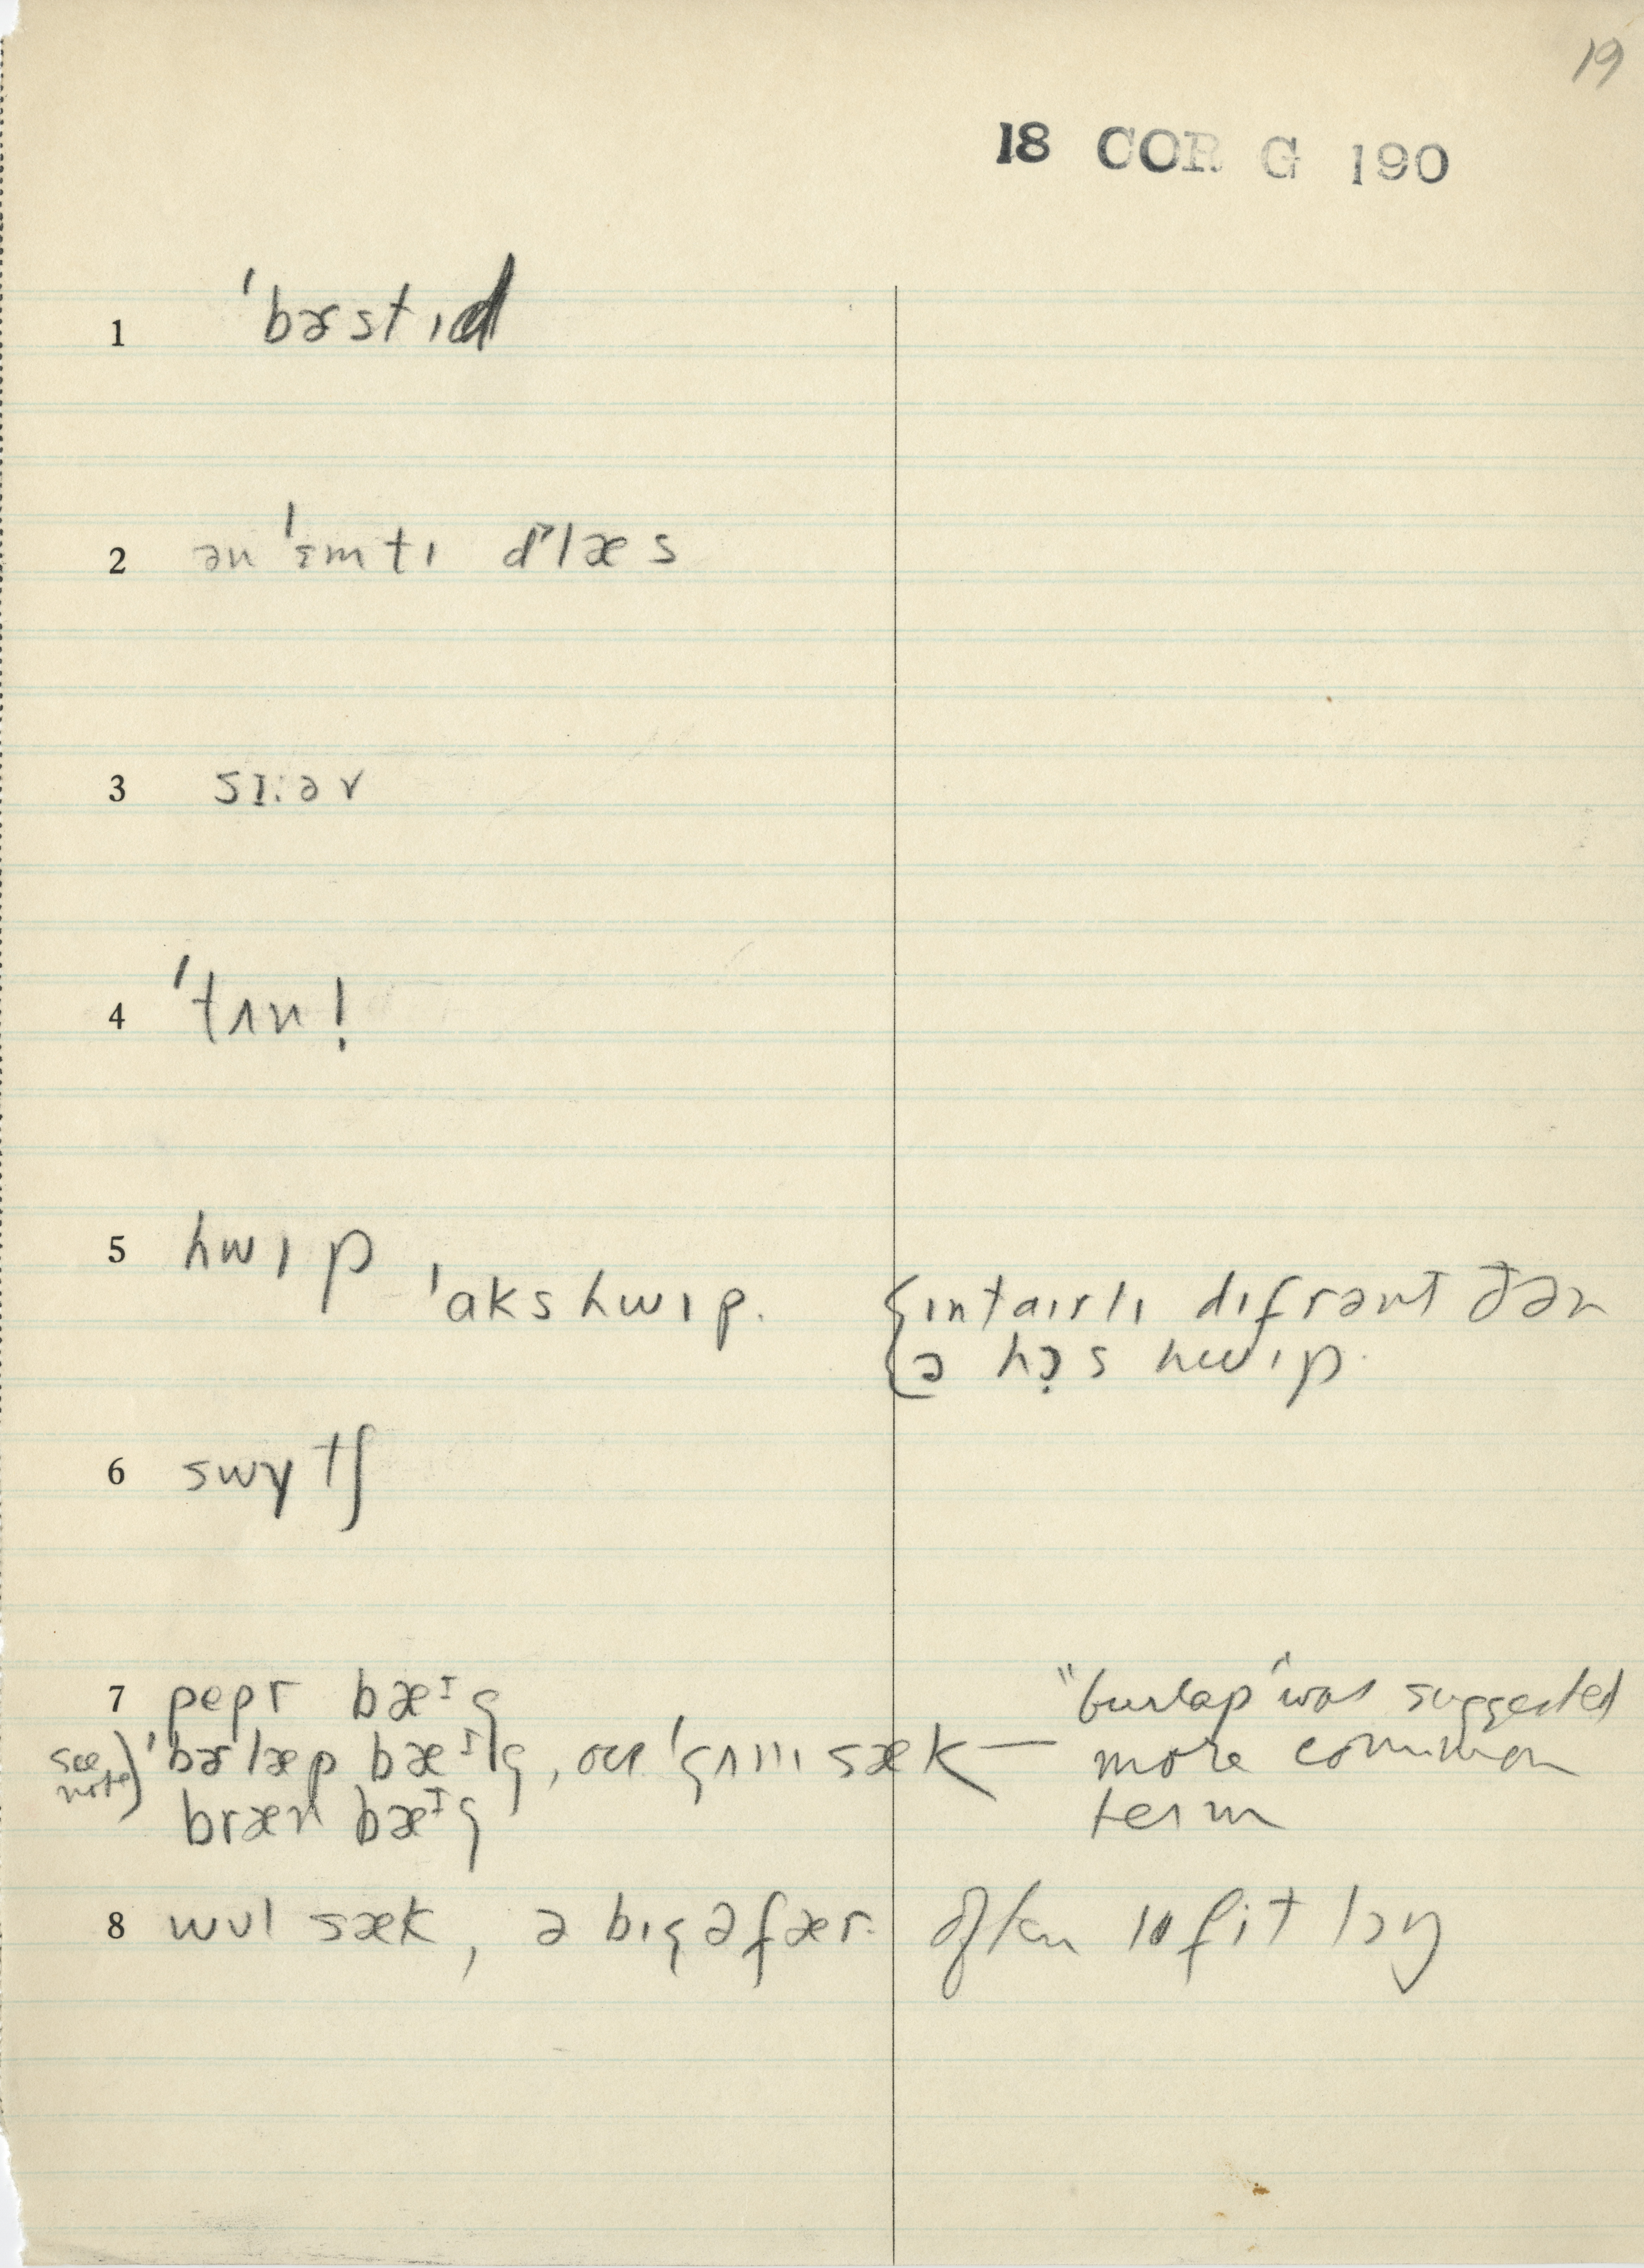 19
18 COR G 190
1 ˈbɚstɪd
2 ən ˈɛmtɪ glæs
3 sɪ:ər
4 ˈtʌn!
5 hwɪp
ˈaks hwɪp. {ɪntaɪrlɪ dɪfrənt ðən
ə hɔ̣s hwɪp.
6 swɪtʃ
7 pepr bæᶦg
see note) ˈbɚlæp bæᶦg, ˈgʌnɪ sæk — "burlap" was suggested
bræn bæᶦg more common
term
8 wʊl sæk, ə bɪg əfær. often 10 fit